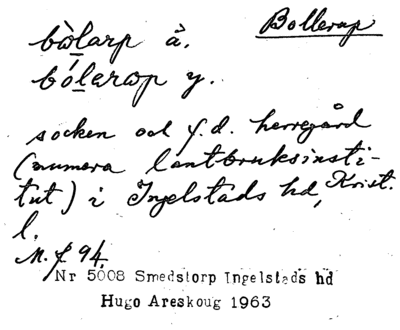 Bollerup
bòlarp ä.
bólerɷp y.
socken och f.d. herregård
(numera lantbruksinsti-
tut) i Ingelstads hd, Krist.
l.
M. f. 94.
Nr 5008 Smedstorp Ingelstads hd
Hugo Areskoug 1963